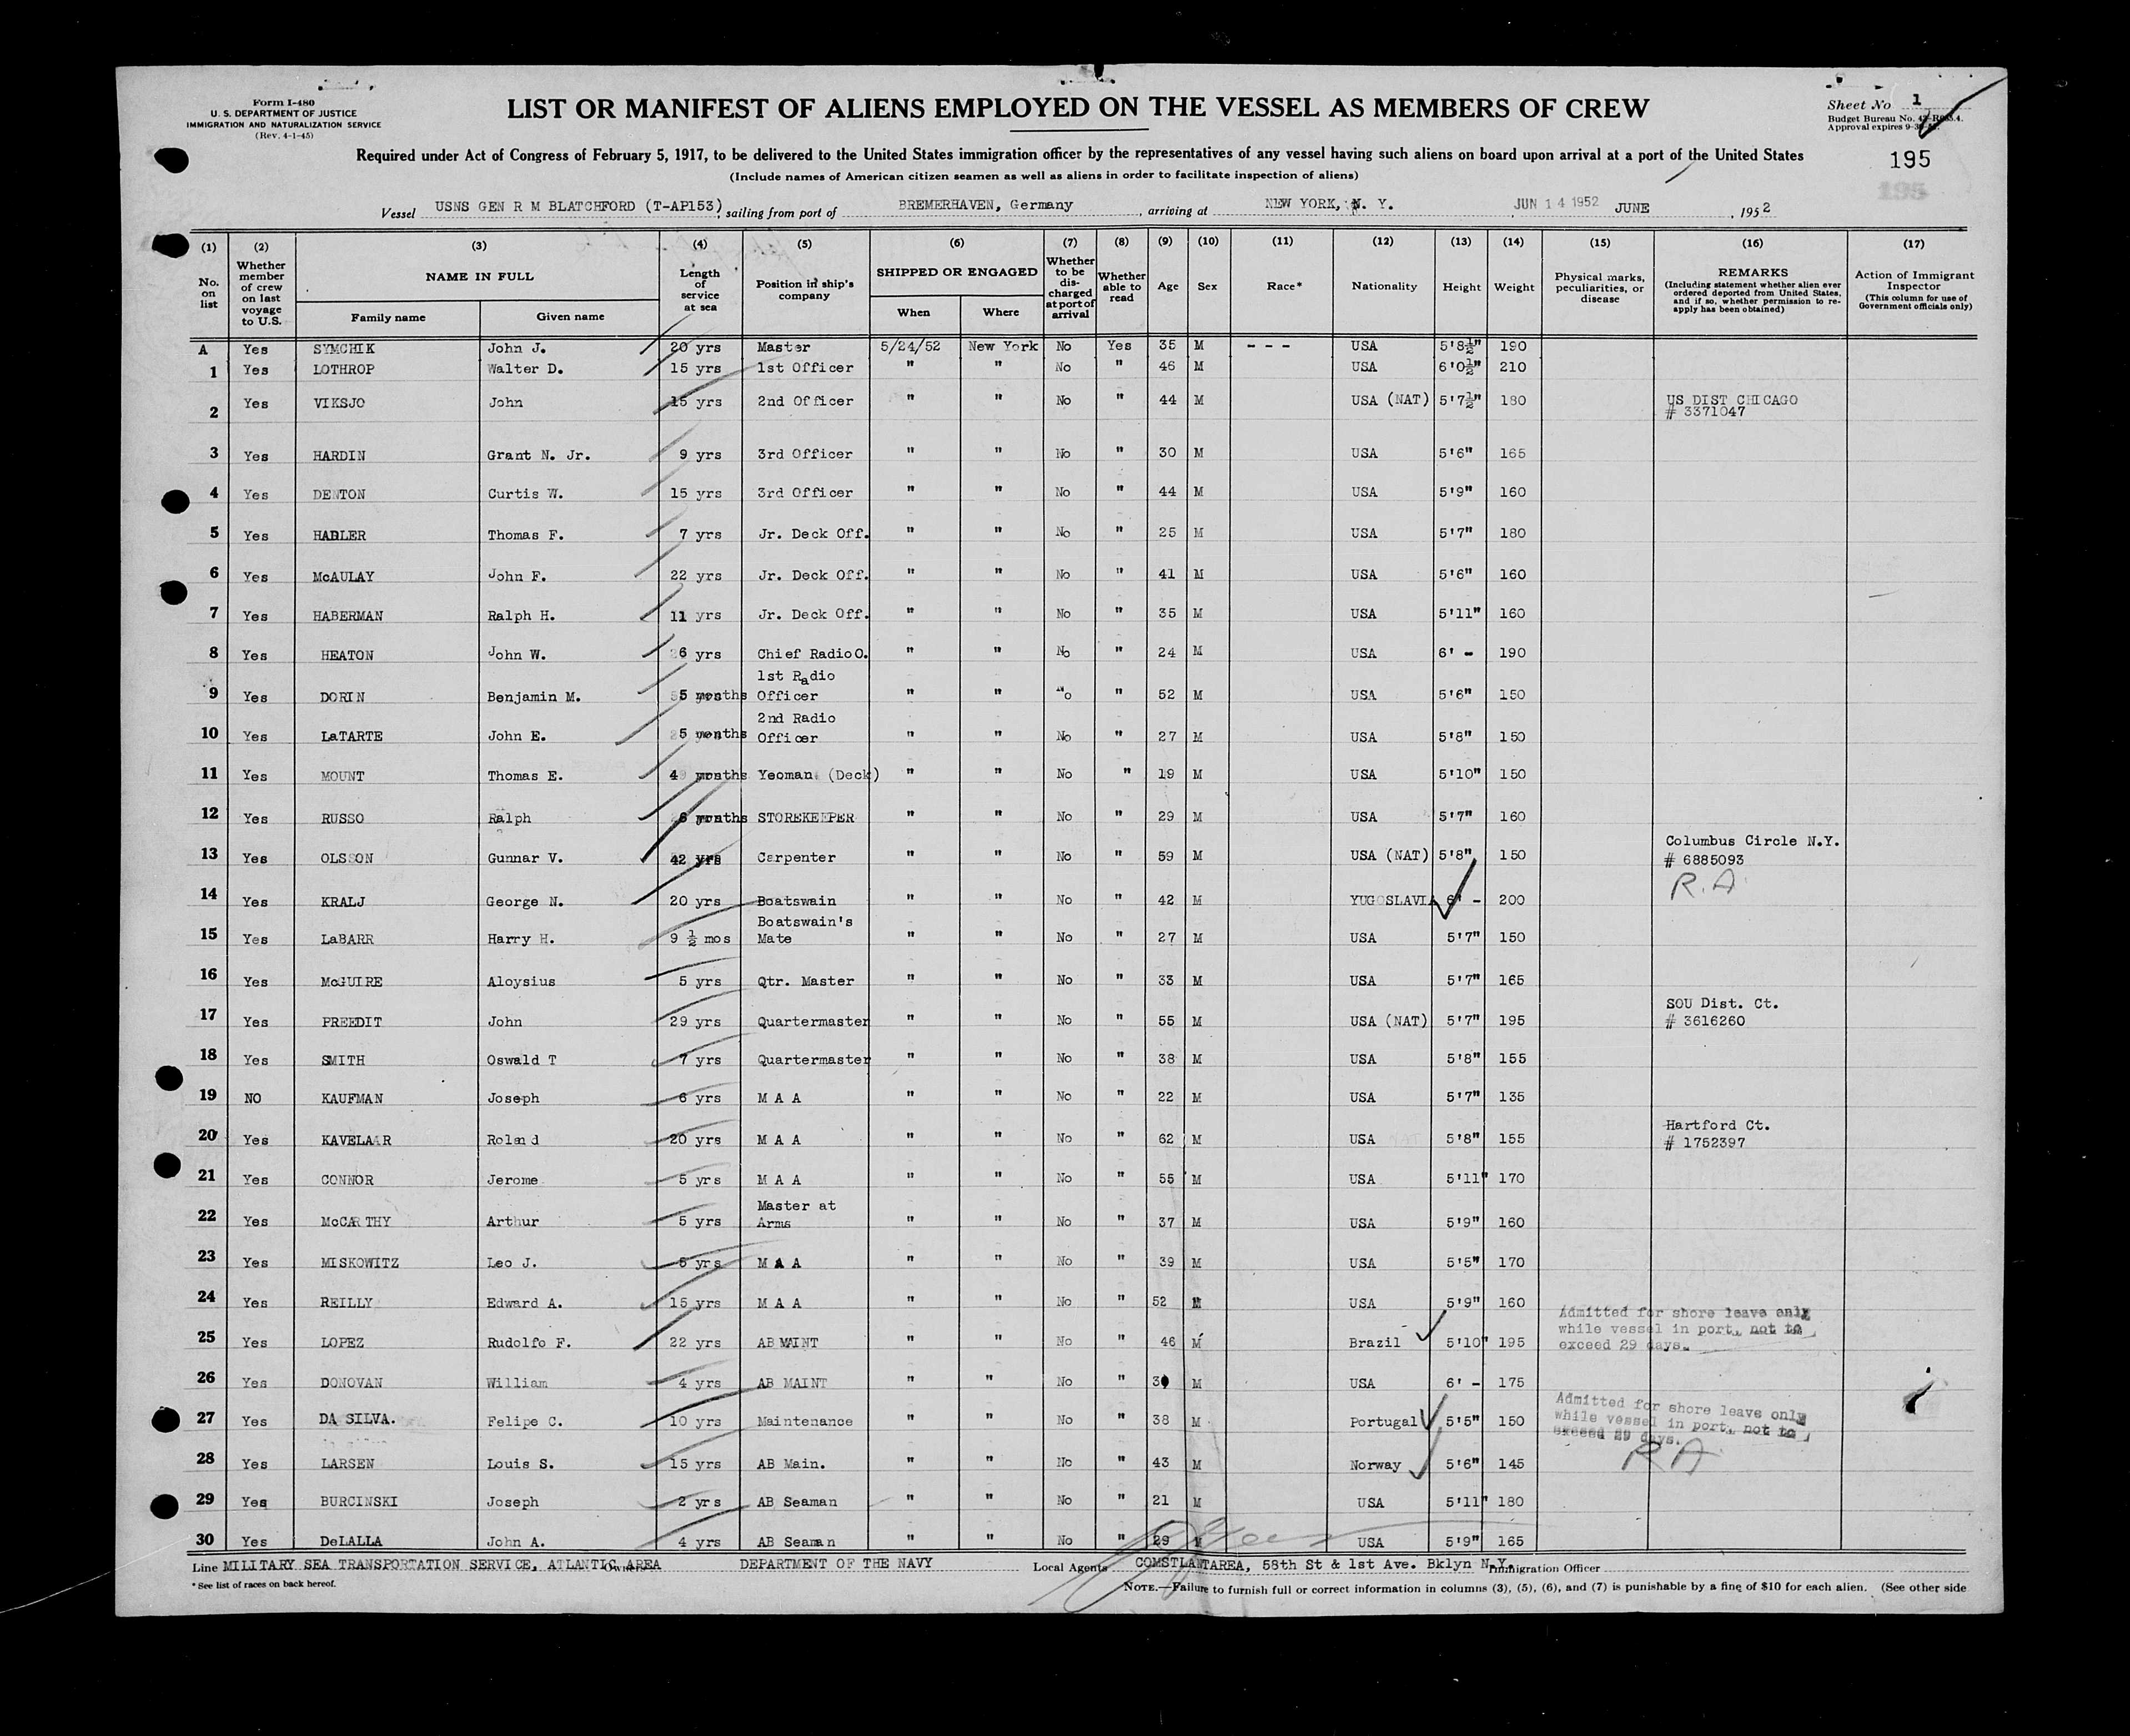 Form I-480
U. S. DEPARTMENT OF JUSTICE
IMMIGRATION AND NATURALIZATION SERVICE
(Rev. 4-1-45)
LIST OR MANIFEST OF ALIENS EMPLOYED ON THE VESSEL AS MEMBERS OF CREW
Sheet No 1
Budget Bureau No.
Approval expires
Required under Act of Congress of February 5, 1917, to be delivered to the United States immigration officer by the representatives of any vessel having such aliens on board upon arrival at a port of the United States
195
195
(Include names of American citizen seamen as well as aliens in order to facilitate inspection of aliens)
Vessel USNS GEN R M BLATCHFORD (T-AP153), sailing from port of BREMERHAVEN, Germany, arriving at NEW YORK, N. Y. JUN 14 1952 JUNE, 1952
(1) (2) (3) (4) (5) (6) (7) (8) (9) (10) (11) (12) (13) (14) (15) (16) (17)
No. on list Whether member of crew on last voyage to U.S. NAME IN FULL Family name Given name Length of service at sea Position in ship's company SHIPPED OR ENGAGED When Where Whether to be discharged at port of arrival Whether able to read Age Sex Race* Nationality Height Weight Physical marks, peculiarities, or disease REMARKS (Including statement whether alien ever ordered deported from United States, and if so, whether permission to re-apply has been obtained) Action of Immigrant Inspector (This column for use of Government officials only)
A Yes SYMCHIK John J. 20 yrs Master 5/24/52 New York No Yes 35 M - - - USA 5'8½" 190
1 Yes LOTHROP Walter D. 15 yrs 1st Officer " " No " 46 M USA 6'0½" 210
2 Yes VIKSJO John 15 yrs 2nd Officer " " No " 44 M USA (NAT) 5'7½" 180 US DIST CHICAGO
# 3371047
3 Yes HARDIN Grant N. Jr. 9 yrs 3rd Officer " " No " 30 M USA 5'6" 165
4 Yes DENTON Curtis W. 15 yrs 3rd Officer " " No " 44 M USA 5'9" 160
5 Yes HADLER Thomas F. 7 yrs Jr. Deck Off. " " No " 25 M USA 5'7" 180
6 Yes McAULAY John F. 22 yrs Jr. Deck Off. " " No " 41 M USA 5'6" 160
7 Yes HABERMAN Ralph H. 11 yrs Jr. Deck Off. " " No " 35 M USA 5'11" 160
8 Yes HEATON John W. 6 yrs Chief Radio O. " " No " 24 M USA 6' - 190
9 Yes DORIN Benjamin M. 5 months 1st Radio Officer " " No " 52 M USA 5'6" 150
10 Yes LaTARTE John E. 5 months 2nd Radio Officer " " No " 27 M USA 5'8" 150
11 Yes MOUNT Thomas E. 4 months Yeoman (Deck) " " No " 19 M USA 5'10" 150
12 Yes RUSSO Ralph 6 months STOREKEEPER " " No " 29 M USA 5'7" 160
13 Yes OLSSON Gunnar V. 42 yrs Carpenter " " No " 59 M USA (NAT) 5'8" 150 Columbus Circle N.Y.
# 6885093
R.A.
14 Yes KRALJ George N. 20 yrs Boatswain " " No " 42 M YUGOSLAVIA 6' - 200
15 Yes LaBARR Harry H. 9 ½ mos Boatswain's Mate " " No " 27 M USA 5'7" 150
16 Yes McGUIRE Aloysius 5 yrs Qtr. Master " " No " 33 M USA 5'7" 165
17 Yes PREEDIT John 29 yrs Quartermaster " " No " 55 M USA (NAT) 5'7" 195 SOU Dist. Ct.
# 3616260
18 Yes SMITH Oswald T 7 yrs Quartermaster " " No " 38 M USA 5'8" 155
19 NO KAUFMAN Joseph 6 yrs M A A " " No " 22 M USA 5'7" 135
20 Yes KAVELAAR Roland 20 yrs M A A " " No " 62 M USA 5'8" 155 Hartford Ct.
# 1752397
21 Yes CONNOR Jerome 5 yrs M A A " " No " 55 M USA 5'11" 170
22 Yes McCARTHY Arthur 5 yrs Master at Arms " " No " 37 M USA 5'9" 160
23 Yes MISKOWITZ Leo J. 5 yrs M A A " " No " 39 M USA 5'5" 170
24 Yes REILLY Edward A. 15 yrs M A A " " No " 52 M USA 5'9" 160
25 Yes LOPEZ Rudolfo F. 22 yrs AB MAINT " " No " 46 M Brazil 5'10" 195 Admitted for shore leave only
while vessel in port, not to
exceed 29 days.
26 Yes DONOVAN William 4 yrs AB MAINT " " No " M USA 6' - 175
27 Yes DA SILVA. Felipe C. 10 yrs Maintenance " " No " 38 M Portugal 5'5" 150 Admitted for shore leave only
while vessel in port, not to
exceed 29 days.
R A
28 Yes LARSEN Louis S. 15 yrs AB Main. " " No " 43 M Norway 5'6" 145
29 Yes BURCINSKI Joseph 2 yrs AB Seaman " " No " 21 M USA 5'11" 180
30 Yes DeLALLA John A. 4 yrs AB Seaman " " No " 29 M USA 5'9" 165
Line MILITARY SEA TRANSPORTATION SERVICE, ATLANTIC AREA Owners DEPARTMENT OF THE NAVY Local Agents COMSTLANTAREA, 58th St & 1st Ave. Bklyn N.Y. Immigration Officer
* See list of races on back hereof.
NOTE.—Failure to furnish full or correct information in columns (3), (5), (6), and (7) is punishable by a fine of $10 for each alien. (See other side